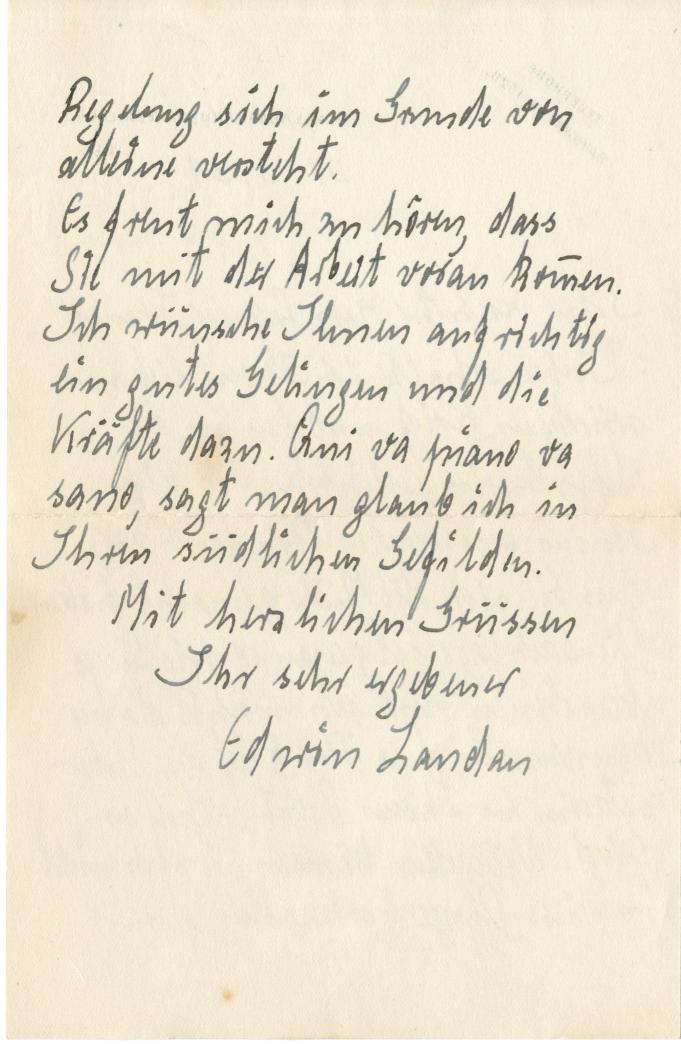 Regelung sich im Grunde von
alleine versteht.
Es freut mich zu hören, dass
Sie mit der Arbeit voran kom̄en.
Ich wünsche Ihnen aufrichtig
ein gutes Gelingen und die
Kräfte dazu. Qui va piano va
sano, sagt man glaub ich in
Ihren südlichen Gefilden.
Mit herzlichen Grüssen
Ihr sehr ergebener
Edwin Landau